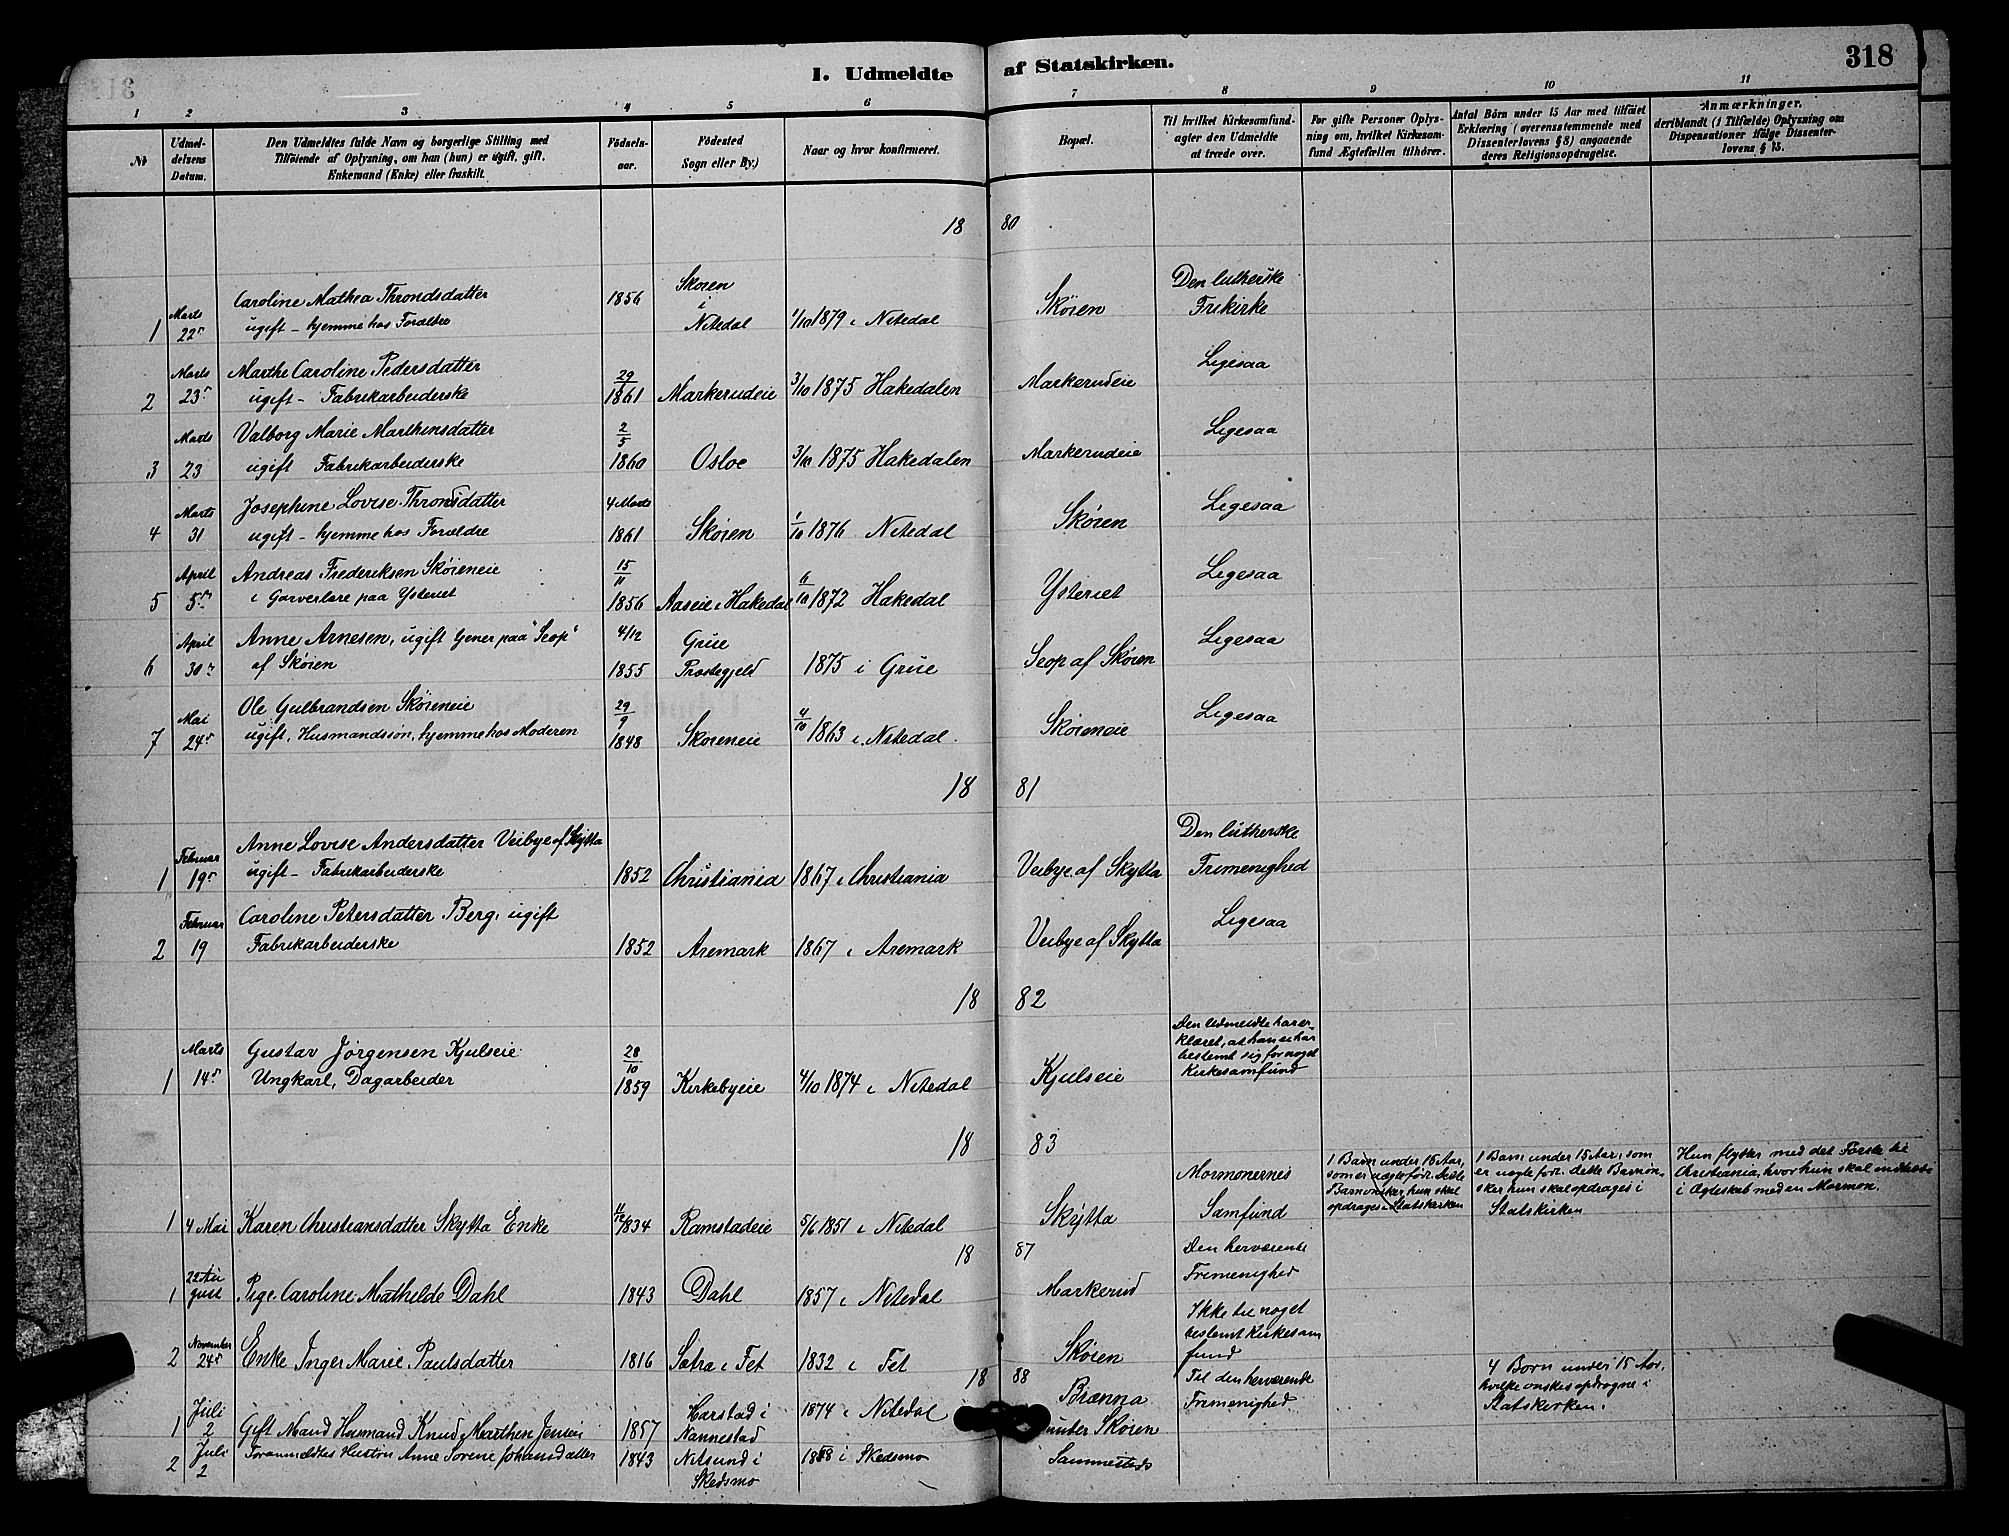 I. Udmeldte af Statskirken.
318
1 2 3 4 5 6 7 8 9 10 11
№
Udmel-
delsens
Datum.
Den Udmeldtes fulde Navn og borgerlige Stilling med
Tilföiende af Oplysning, om han (hun) er ugift, gift,
Enkemand (Enke) eller fraskilt.
Födsels-
aar.
Födested
Sogn eller By.)
Naar og hvor konfirmeret.
Bopæl.
Til hvilket Kirkesamfund
agter den Udmeldte
at træde over.
For gifte Personer Oplys-
ning om, hvilket Kirkesam-
fund Ægtefællen tilhörer.
Antal Börn under 15 Aar med tilföiet
Erklæring (overensstemmende med
Dissenterlovens § 8) angaaende
deres Religionsopdragelse.
Anmærkninger,
deriblandt (i Tilfælde) Oplysning om
Dispensationer ifölge Dissenter-
lovens § 15.
18 80
1 Marts 22 Caroline Mathea Throndsdatter
ugift - hjemme hos Forældre
1856 Skøien i Nitedal 1/10 1879 i Nitedal Skøien Den lutherske Frikirke
2 Marts 23 Marthe Caroline Pedersdatter
ugift - Fabrikarbeiderske
29/1861 Markerudeie 3/10 1875 Hakedalen Markerudeie Ligesaa
3 Marts 23 Valborg Marie Marthinsdatter
ugift Fabrikarbeiderske
2/5 1860 Osloe 3/10 1875 Hakedalen Markerudeie Ligesaa
4 Marts 31 Josephine Lovise Throndsdatter
ugift - hjemme hos Forældre
4 Marts 1861 Skøien 1/10 1876 Nitedal Skøien Ligesaa
5 April 5 Andreas Frederiksen Skøieneie
i Garverlære paa Ysteriet
15/11 1856 Aaseie i Hakedal 6/10 1872 Hakedal Ysteriet Ligesaa
6 April 30 Anne Arnesen, ugift paa "Seop"
af Skøien
4/12 1855 Grue Præstegjeld 1875 i Grue Seop af Skøien Ligesaa
7 Mai 24 Ole Gulbrandsen Skøieneie
ugift, Husmandssøn, hjemme hos Moderen
29/9 1848 Skøieneie 4/10 1863 i Nitedal. Skøieneie Ligesaa
18 81
1 Februar 19 Anne Lovise Andersdatter Veibye af Skytta
ugift - Fabrikarbeiderske
1852 Christiania 1867 i Christiania Veibye af Skytta Den lutherske Frimenighed
2 Februar 19 Caroline Petersdatter Berg, ugift
Fabrikarbeiderske
1852 Aremark 1867 i Aremark Veibye af Skytta Ligesaa
18 82
1 Marts 14 Gustav Jørgensen Kjulseie
Ungkarl, Dagarbeider
28/10 1859 Kirkebyeie 4/10 1874 i Nitedal Kjulseie
Den Udmeldte har er-
klæret, at han ei har
bestemt sig for noget
Kirkesamfund
18 83
1 4 Mai Karen Christiansdatter Skytta Enke
1834 Ramstadeie 5/6 1851 i Nitedal Skytta Mormonernes Samfund
1 Barn under 15 Aar,
som er uægtefød. Dette
Barn ønsker hun skal
opdrages i Statskirken
1 Barn under 15 Aar, som
er uægte fød. dette Barn øn-
sker hun skal opdrages i
Statskirken
Hun flytter med det Første til
Christiania, hvor hun skal indtræde
i Ægteskab med en Mormon.
18 87
1 22 Au gust Pige Caroline Mathilde Dahl
1843 Dahl 1857 i Nitedal Markerud Den herværende Frimenighed
2 November 24 Enke Inger Marie Paulsdatter
1816 Sætra i Fet 1832 i Fet Skøien
Ikke til noget
bestemt Kirkesam
fund
18 88
1 Juli 2 Gift Mand Husmand Knud Marthin Jensen
1857 Harstad i Nannestad 1874 i Nitedal Brænna under Skøien Til den herværende Frimenighed
4 Børn under 15 Aar,
hvilke ønskes opdragne i
Statskirken.
2 Juli 2 Foranmeldtes Hustru Anne Sørine Johansdatter
1843 Nitsund i Skedsmo 1858 i Skedsmo Sammesteds